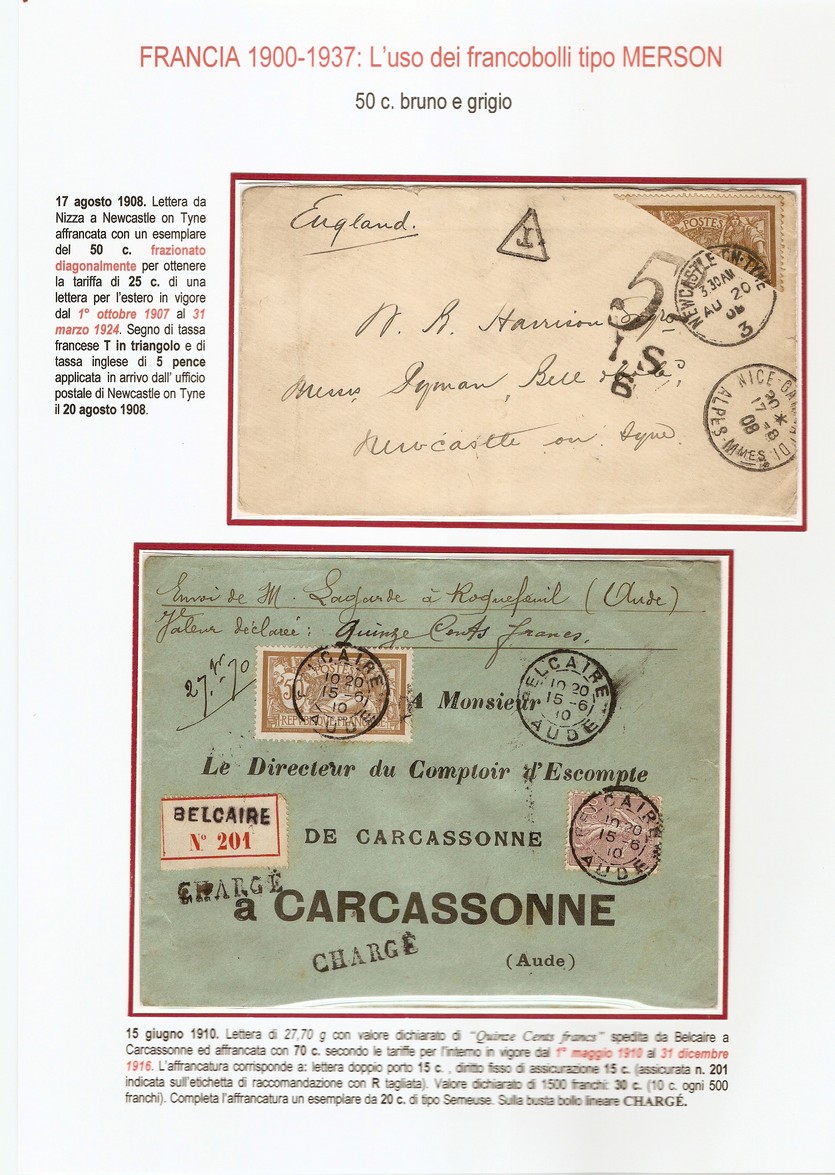 FRANCIA 1900-1937: L'uso dei francobolli tipo MERSON
50 c. bruno e grigio
17 agosto 1908. Lettera da
Nizza a Newcastle on Tyne
affrancata con un esemplare
del 50 c. frazionato
diagonalmente per ottenere
la tariffa di 25 c. di una
lettera per l'estero in vigore
dal 1° ottobre 1907 al 31
marzo 1924. Segno di tassa
francese T in triangolo e di
tassa inglese di 5 pence
applicata in arrivo dall' ufficio
postale di Newcastle on Tyne
il 20 agosto 1908.
England.
T
POSTES
5
I.S
6
NEWCASTLE ON-TYNE
3.30AM
AU 20
08
3
W. R. Harrison
Messrs Pyman, Bell
Newcastle on Tyne.
NICE
20 *
17 -8
08
ALPES-MMES
Envoi de M. Lagarde à Roquefeuil (Aude)
Valeur déclarée: Quinze Cents francs.
27.gr 70
POSTES
50
REPUBLIQUE FRANÇAISE
BELCAIRE
10 20
15 -6
10
AUDE
BELCAIRE
10 20
15 -6
10
AUDE
A Monsieur
Le Directeur du Comptoir d'Escompte
BELCAIRE
N° 201
DE CARCASSONNE
BELCAIRE
10 20
15 -6
10
AUDE
CHARGÉ
à CARCASSONNE
CHARGÉ
(Aude)
15 giugno 1910. Lettera di 27,70 g con valore dichiarato di "Quinze Cents francs" spedita da Belcaire a
Carcassonne ed affrancata con 70 c. secondo le tariffe per l'interno in vigore dal 1° maggio 1910 al 31 dicembre
1916. L'affrancatura corrisponde a: lettera doppio porto 15 c. , diritto fisso di assicurazione 15 c. (assicurata n. 201
indicata sull'etichetta di raccomandazione con R tagliata). Valore dichiarato di 1500 franchi: 30 c. (10 c. ogni 500
franchi). Completa l'affrancatura un esemplare da 20 c. di tipo Semeuse. Sulla busta bollo lineare CHARGÉ.